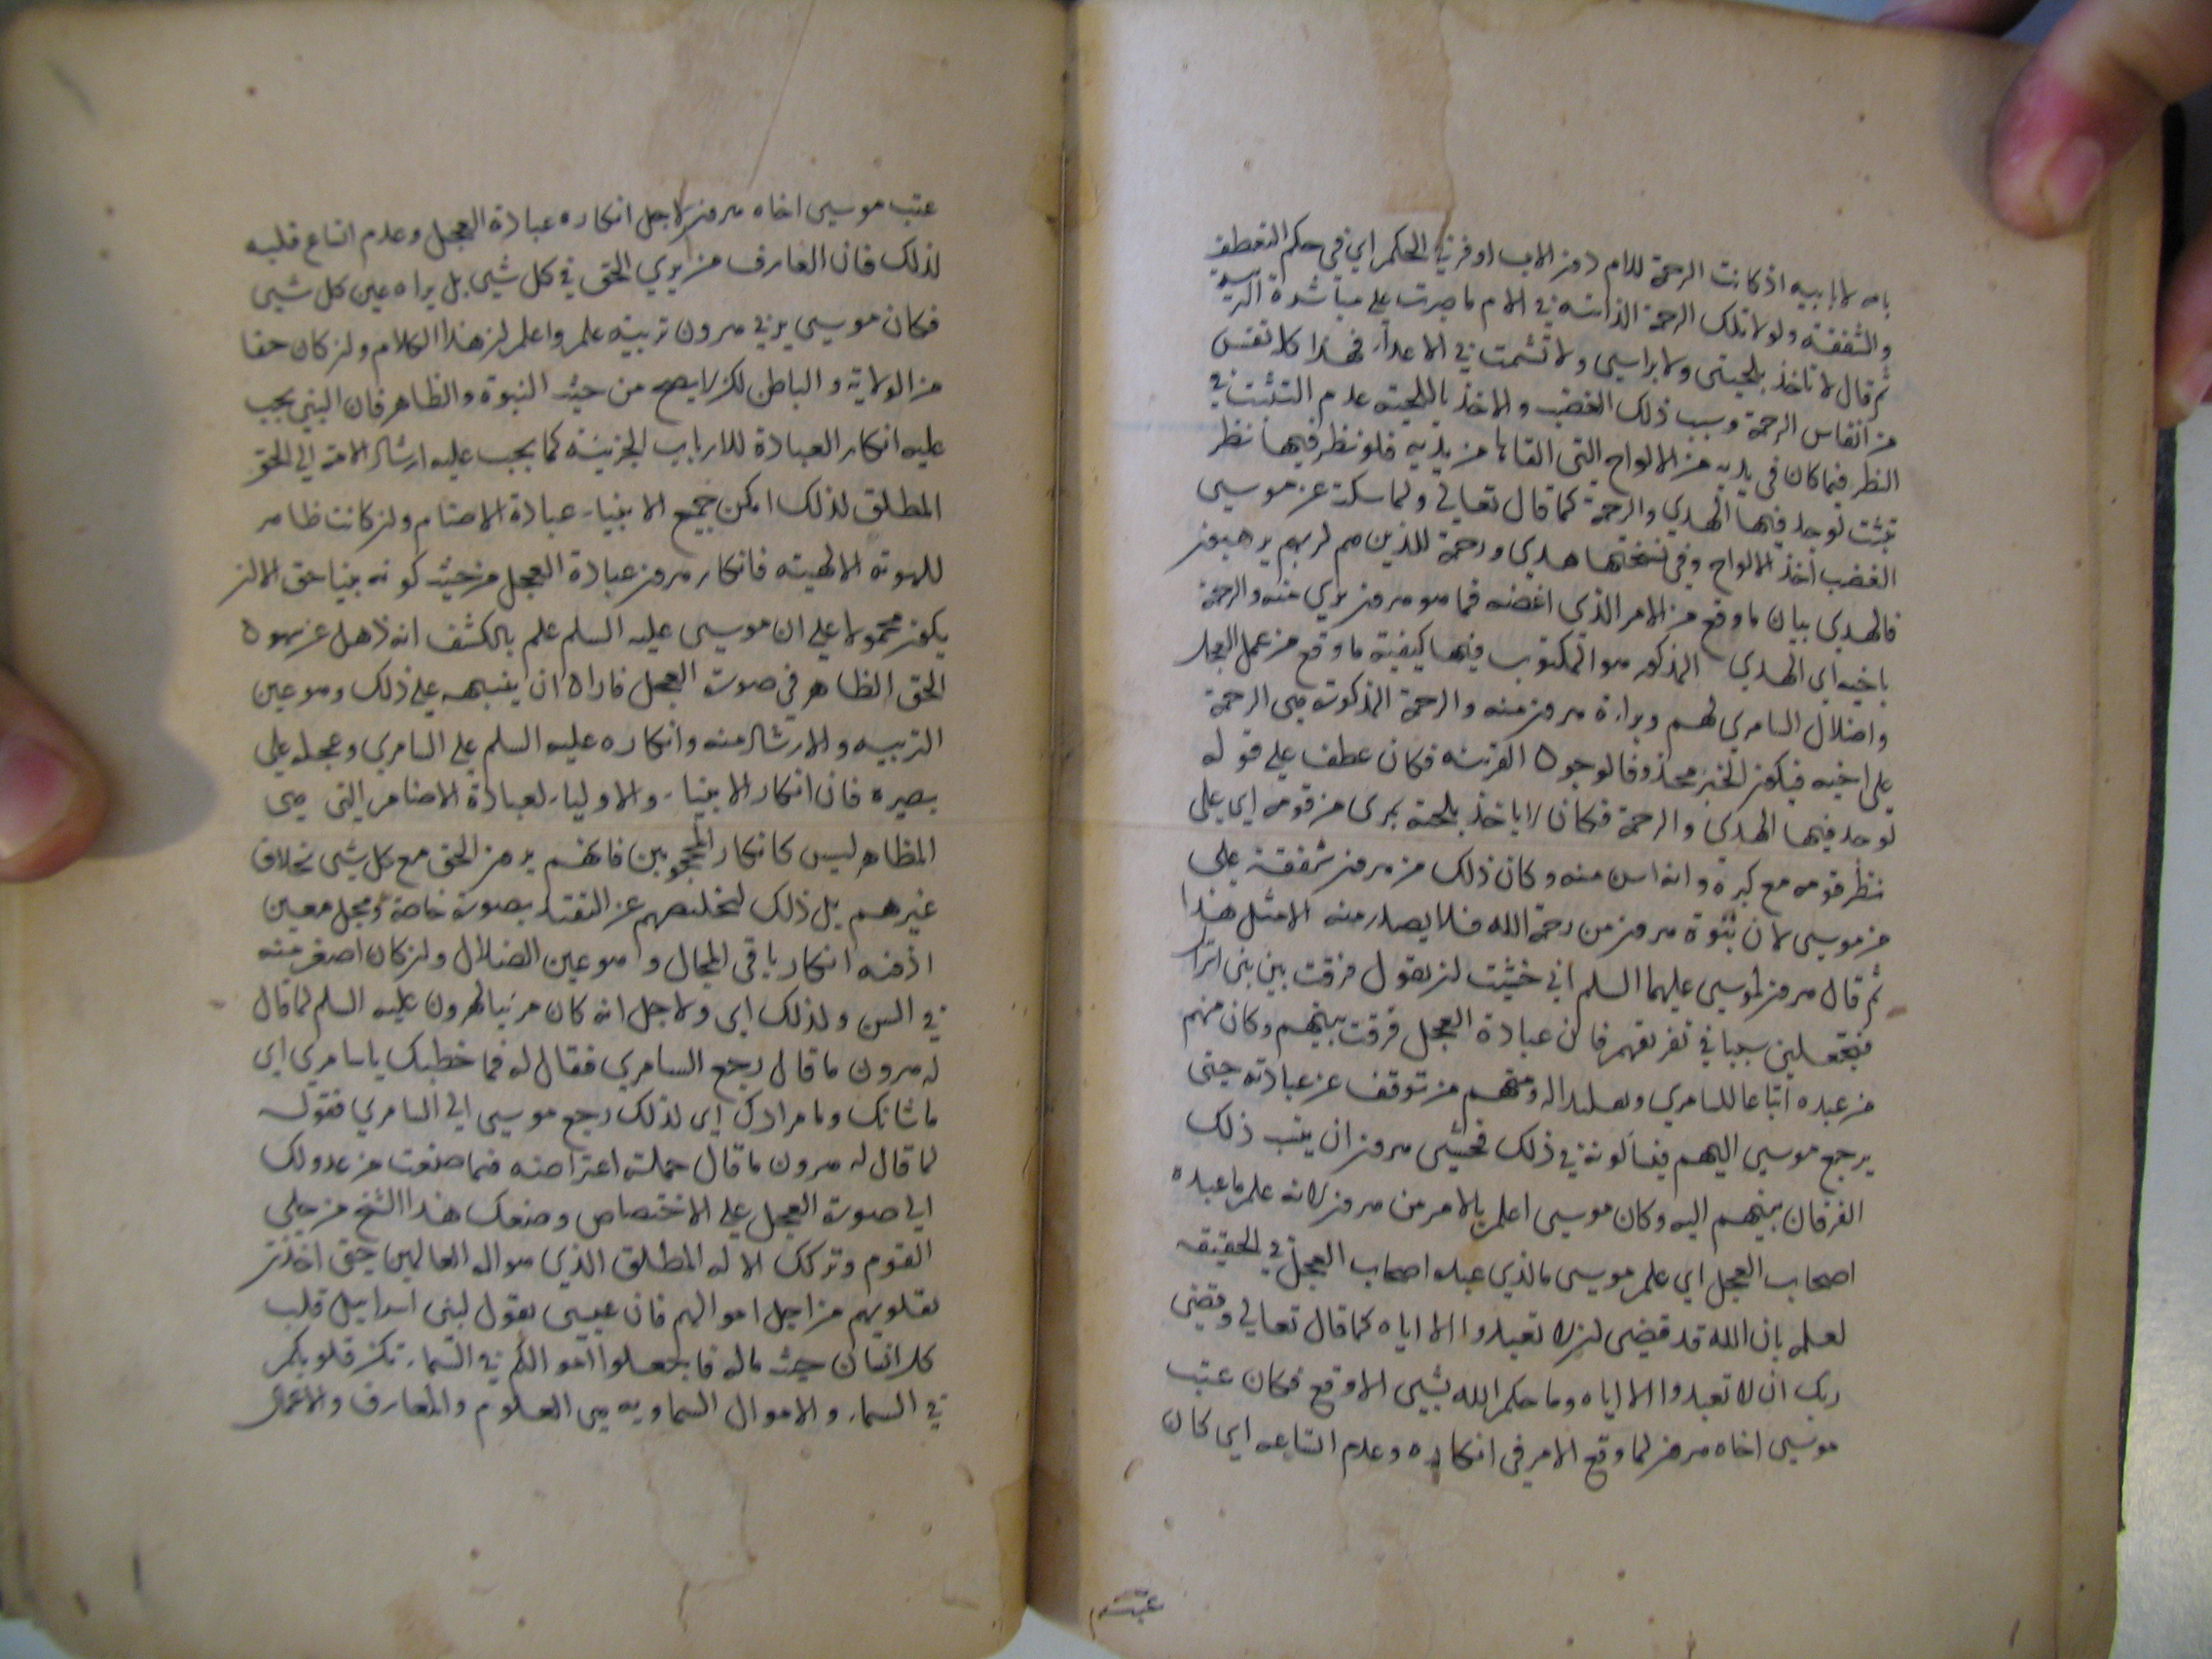 بامه لا بابيه اذ كانت الرحمة للام دون الاب اوفر في الحكم اي في حكم التعطف
والشفقة ولولا تلك الرحمة الذاتية في الام ما صبرت على مباشرة التربية
ثم قال لا تاخذ بلحيتى ولا براسي ولا تشمت بي الاعداء فهذا كله نفس
من انفاس الرحمة وسبب ذلك الغضب والاخذ باللحية عدم التثبت في
النظر فيما كان في يديه من الالواح التي القاها من يديه فلو نظر فيها نظر
تثبت لوجد فيها الهدي والرحمة كما قال تعالي ولما سكت عن موسي
الغضب اخذ الالواح وفي نسختها هدي ورحمة للذين هم لربهم يرهبون
فالهدي بيان ما وقع من الامر الذي اغضبه فما هو هرون بري منه والرحمة
باخيه اي الهدي المذكور هو المكتوب فيها كيفية ما وقع من عمل العجل
واضلال السامري لهم وبراءة هرون منه والرحمة المذكورة هي الرحمة
على اخيه فيكون الخبر محذوفا لوجود القرينة فكان عطف على قوله
لوجد فيها الهدى والرحمة فكان لا ياخذ بلحيته بمرى من قومه اي على
نظر قومه مع كبره وانه اسن منه وكان ذلك من هرون شفقة على
موسي لان نبوة هرون من رحمة الله فلا يصدر منه الا مثل هذا
ثم قال هرون لموسي عليهما السلم اني خشيت ان تقول فرقت بين بني اسرا
فتجعلني سببا في تفريقهم فان عبادة العجل فرقت بينهم وكان منهم
من عبده اتباعا للسامري وتقليدا له ومنهم من توقف عن عبادته حتى
يرجع موسي اليهم فيسألونه في ذلك فخشي هرون ان ينسب ذلك
الفرقان بينهم اليه وكان موسي اعلم بالامر من هرون لانه علم ما عبده
اصحاب العجل اي علم موسي ما الذي عبده اصحاب العجل في الحقيقه
لعلمه بان الله قد قضي ان لا تعبدوا الا اياه كما قال تعالي وقضي
ربك ان لا تعبدوا الا اياه وما حكم الله بشيي الا وقع فكان عتب
موسي اخاه هرون لما وقع الامر في انكاره وعدم اتساعه اي كان
عتب موسي اخاه هرون لاجل انكاره عبادة العجل وعدم اتساع قلبه
لذلك فان العارف من يري الحق في كل شيى بل يراه عين كل شيى
فكان موسي يربي هرون تربية علم واعلم ان هذا الكلام وان كان حقا
من الولاية والباطن لكن لا يصح من حيث النبوة والظاهر فان النبي يجب
عليه انكار العبادة للارباب الجزئية كما يجب عليه ارشاد الامة الي الحق
المطلق لذلك انكر جميع الانبياء عبادة الاصنام وان كانت مظاهر
للهوية الالهية فانكار هرون عبادة العجل من حيث كونه نبيا حق الا ان
يكون محمولا على ان موسي عليه السلم علم بالكشف انه ذهل عن شهود
الحق الظاهر في صورة العجل فاراد ان ينبهه على ذلك وهو عين
التربية والارشاد منه وانكاره عليه السلم على السامري وعجله على
بصيرة فان انكار الانبياء والاولياء لعبادة الاصنام التي هي
المظاهر ليس كانكار المحجوبين فانهم يرون الحق مع كل شيى بخلاف
غيرهم بل ذلك لتخلصهم عن التقيد بصورة خاصة ومجلى معين
اذ فيه انكار باقي المجال وهو عين الضلال وان كان اصغر منه
في السن ولذلك اي ولاجل انه كان مربيا لهرون عليه السلم لما قال
له هرون ما قال رجع السامري فقال له فما خطبك يا سامري اي
ما شانك وما مرادك اي لذلك رجع موسي الي السامري فقوله
لما قال له هرون ما قال جملة اعتراضية فيما صنعت من عدولك
الي صورة العجل على الاختصاص وصنعك هذا الشبح من حلي
القوم وتركك الا له المطلق الذي هو اله العالمين حتى اخذت
بقلوبهم من اجل اموالهم فان عيسي يقول لبني اسرايل قلب
كل انسان حيث ماله فاجعلوا اموالكم في السماء تكن قلوبكم
في السماء والاموال السماويه هي العلوم والمعارف والاعمال